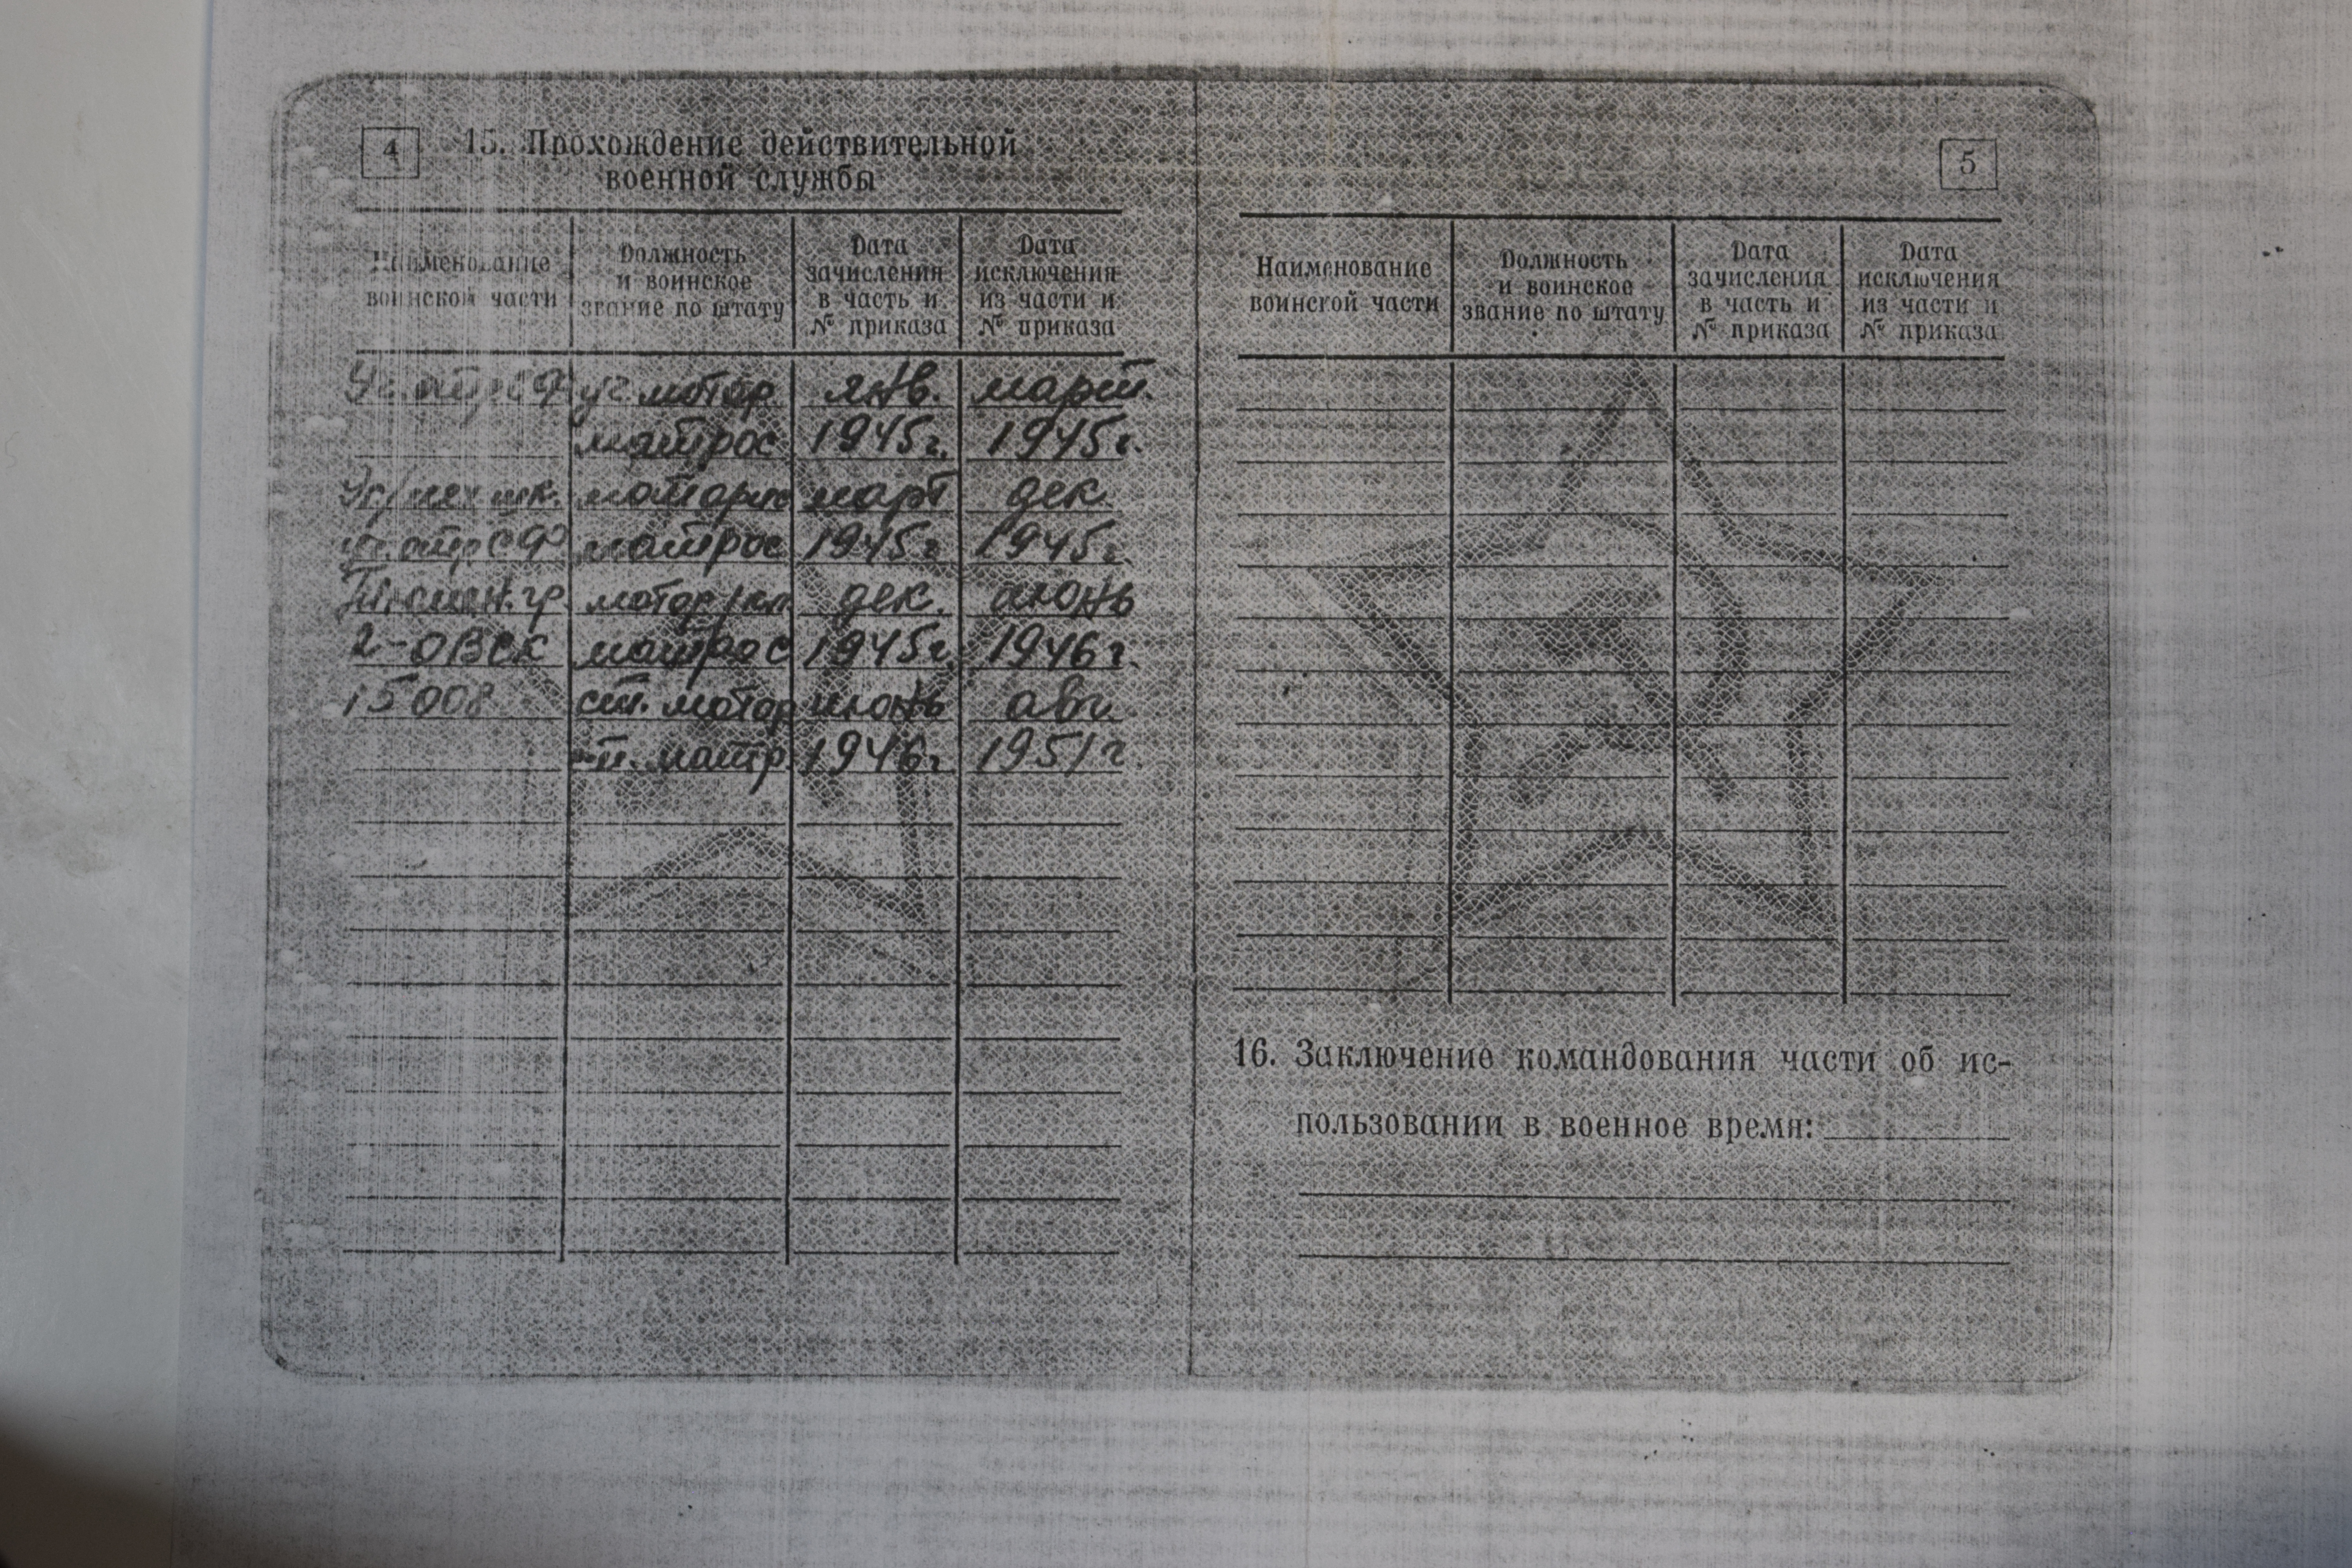 4
15. Прохождение действительной
военной службы
Наименование
воинской части
Должность
и воинское
звание по штату
Дата
зачисления
в часть и
№ приказа
Дата
исключения
из части и
№ приказа
уч. мотор янв. март.
матрос 1945г. 1945г.
март дек.
матрос 1945г 1945г.
дек. июнь
2-ОВСК матрос 1945г. 1946г.
15008 ст. мотор июнь авг.
ст. матр. 1946г 1951г.
5
Наименование
воинской части
Должность
и воинское
звание по штату
Дата
зачисления
в часть и
№ приказа
Дата
исключения
из части и
№ приказа
16. Заключение командования части об ис-
пользовании в военное время: